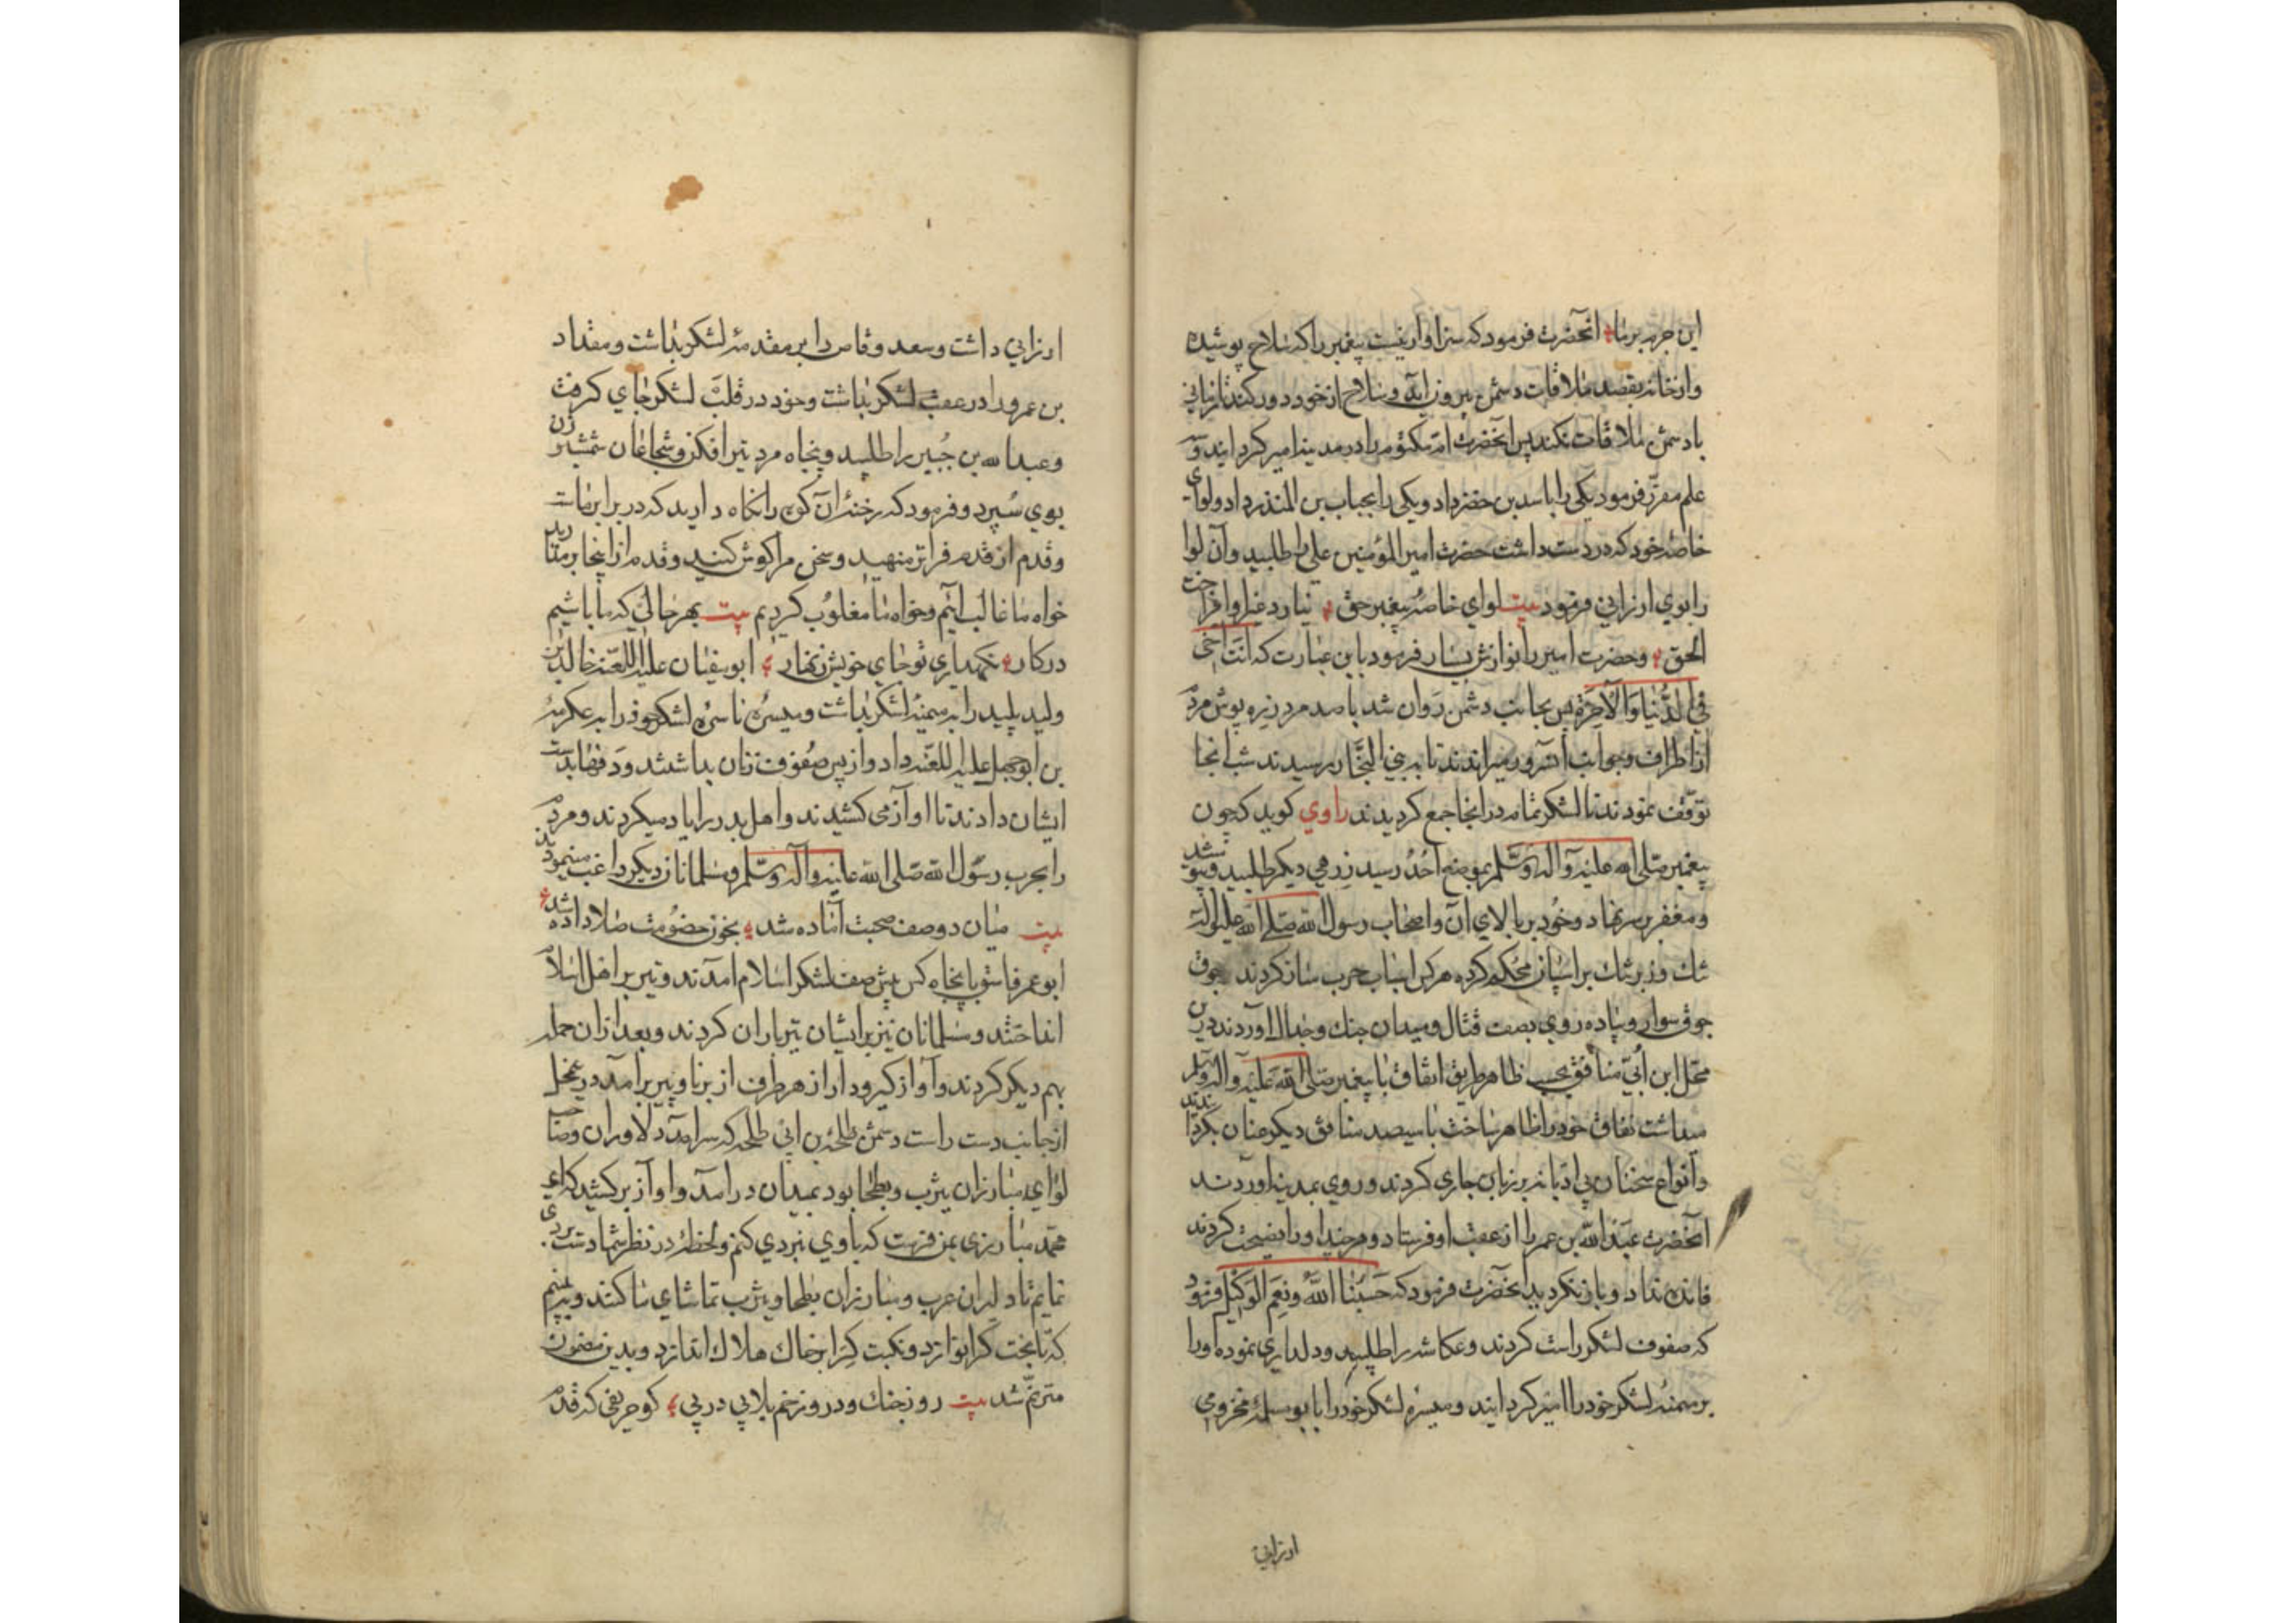 این جربه برما انحضرت فرمود که سزاوار نیست پیغمبر را که سلاح پوشیده
واز خانه بقصد ملاقات دشمن بیرون اید وسلاح از خود دور کند تا زمانی
با دشمن ملاقات نکند پس انحضرت ام مکتوم را در مدینه امیر کردانید و سه
علم مقرر فرمود یکی را باسد بن حضر داد ویکی را بحباب بن المنذر داد ولوای
خاصهٔ خود که در دست داشت حضرت امیر المؤمنین علی را طلبید وآن لوا
را بوی ارزانی فرمود بیت لوای خاصهٔ پیغمبر حق نیارد غیر او افراخت
الحق وحضرت امیر را نوازش بسیار فرمود باین عبارت که انت اخی
فی الدنیا والآخرة پس بجانب دشمن روان شد با صد مرد زره پوش مردم
از اطراف وجوانب آنسرور میراندند تا به بنی النجار رسیدند شب انجا
توقف نمودند تا لشکر تمام در انجا جمع کردیدند راوی کوید که چون
پیغمبر صلی الله علیه وآله وسلم بموضع احد رسید زرهی دیکر طلبید وپوشید
ومغفر بر سر نهاد وخود بر بالای آن واصحاب رسول الله صلی الله علیه وآله
تنک وزبر تنک بر اسپان محکم کرده هر کس اسباب حرب ساز کردند جوق
جوق سوار وپیاده روی بصف قتال ومیدان جنک وجدال اوردند درین
محل ابن ابی منافق بحسب ظاهر طریق اتفاق با پیغمبر صلی الله علیه وآله وسلم
میداشت نفاق خود را ظاهر ساخت با سیصد منافق دیکر عنان بکردانیدند
وانواع سخنان بی ادبانه بر زبان جاری کردند وروی بمدینه اوردند
انحضرت عبدالله بن عمر را از عقب او فرستاد وهر چند او را نصیحت کردند
فائده نداد وباز نکردید انحضرت فرمود که حسبنا الله ونعم الوکیل فرمود
که صفوف لشکر راست کردند وعکاشه را طلبید ودلداری نموده او را
بر میمنهٔ لشکر خود را امیر کردانید ومیسرهٔ لشکر خود را بابو سلمهٔ مخزومی
ارزانی
ارزانی داشت وسعد وقاص را بر مقدمهٔ لشکر بداشت ومقداد
بن عمرو را در عقب لشکر بداشت وخود در قلب لشکر جای کرفت
وعبدالله بن جبیر را طلبید وپنجاه مرد تیر افکن وشجاعان شمشیر زن
بوی سپرد وفرمود که رخنهٔ آن کوه را نکاه دارید که در برابر ماست
وقدم از قدم فراتر منهید وسخن مرا کوش کنید وقدم از اینجا بر مدارید
خواه ما غالب ائیم وخواه ما مغلوب کردیم بیت بهر حالی که ما باشیم
در کار نکهداری تو جای خویش زنهار ابو سفیان علیه اللعنه خالد بن
ولید پلید را بر میمنهٔ لشکر بداشت ومیسرهٔ ناسرهٔ لشکر خود را به عکرمهٔ
بن ابو جهل علیه اللعنه داد واز پس صفوف زنان بداشتند ودفها بدست
ایشان دادند تا اواز می کشیدند واهل بدر را یاد میکردند ومردم
را بحرب رسول الله صلی الله علیه وآله وسلم ومسلمانان دیکر راغب مینمودند
بیت میان دو صف صحبت آماده شد بخون خصومت صلا داده شد
ابو عمر فاسق با پنجاه کس پیش صف لشکر اسلام امدند وتیر بر اهل اسلام
انداختند ومسلمانان نیز بر ایشان تیر باران کردند وبعد از ان حمله
بهم دیکر کردند وآواز کیرودار از هر طرف از برنا وپیر برآمد درین محل
از جانب دست راست دشمن طلحهٔ بن ابی طلحه که سرآمد دلاوران وصاحب
لوای مبارزان یثرب وبطحا بود بمیدان درآمد وآواز بر کشید که ای
محمد مبارزی بمن فرست که با وی نبردی کنم ولحظهٔ در نظر شما دست بردی
نمایم تا دلیران عرب ومبارزان بطحا ویثرب تماشای ما کنند وببینم
که تا بخت کرا نوازد ونکبت کرا بر خاک هلاک اندازد وبدین مضمون
مترنم شد بیت روز جنک ودر وزخم بلا پی در پی کو حریفی که قدم